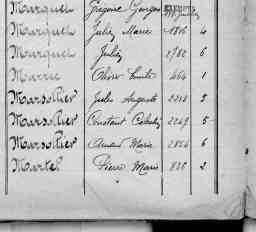 Marquet Grégoire Georges
Marquet Jules Marie 1816 4
Marquet Jules 2782 6
Marrec Olivier 464 1
Marsollier Jules Auguste 2218 5
Marsollier Constant 2249 5
Marsollier Marie 2854 6
Martel Pierre Marie 828 2